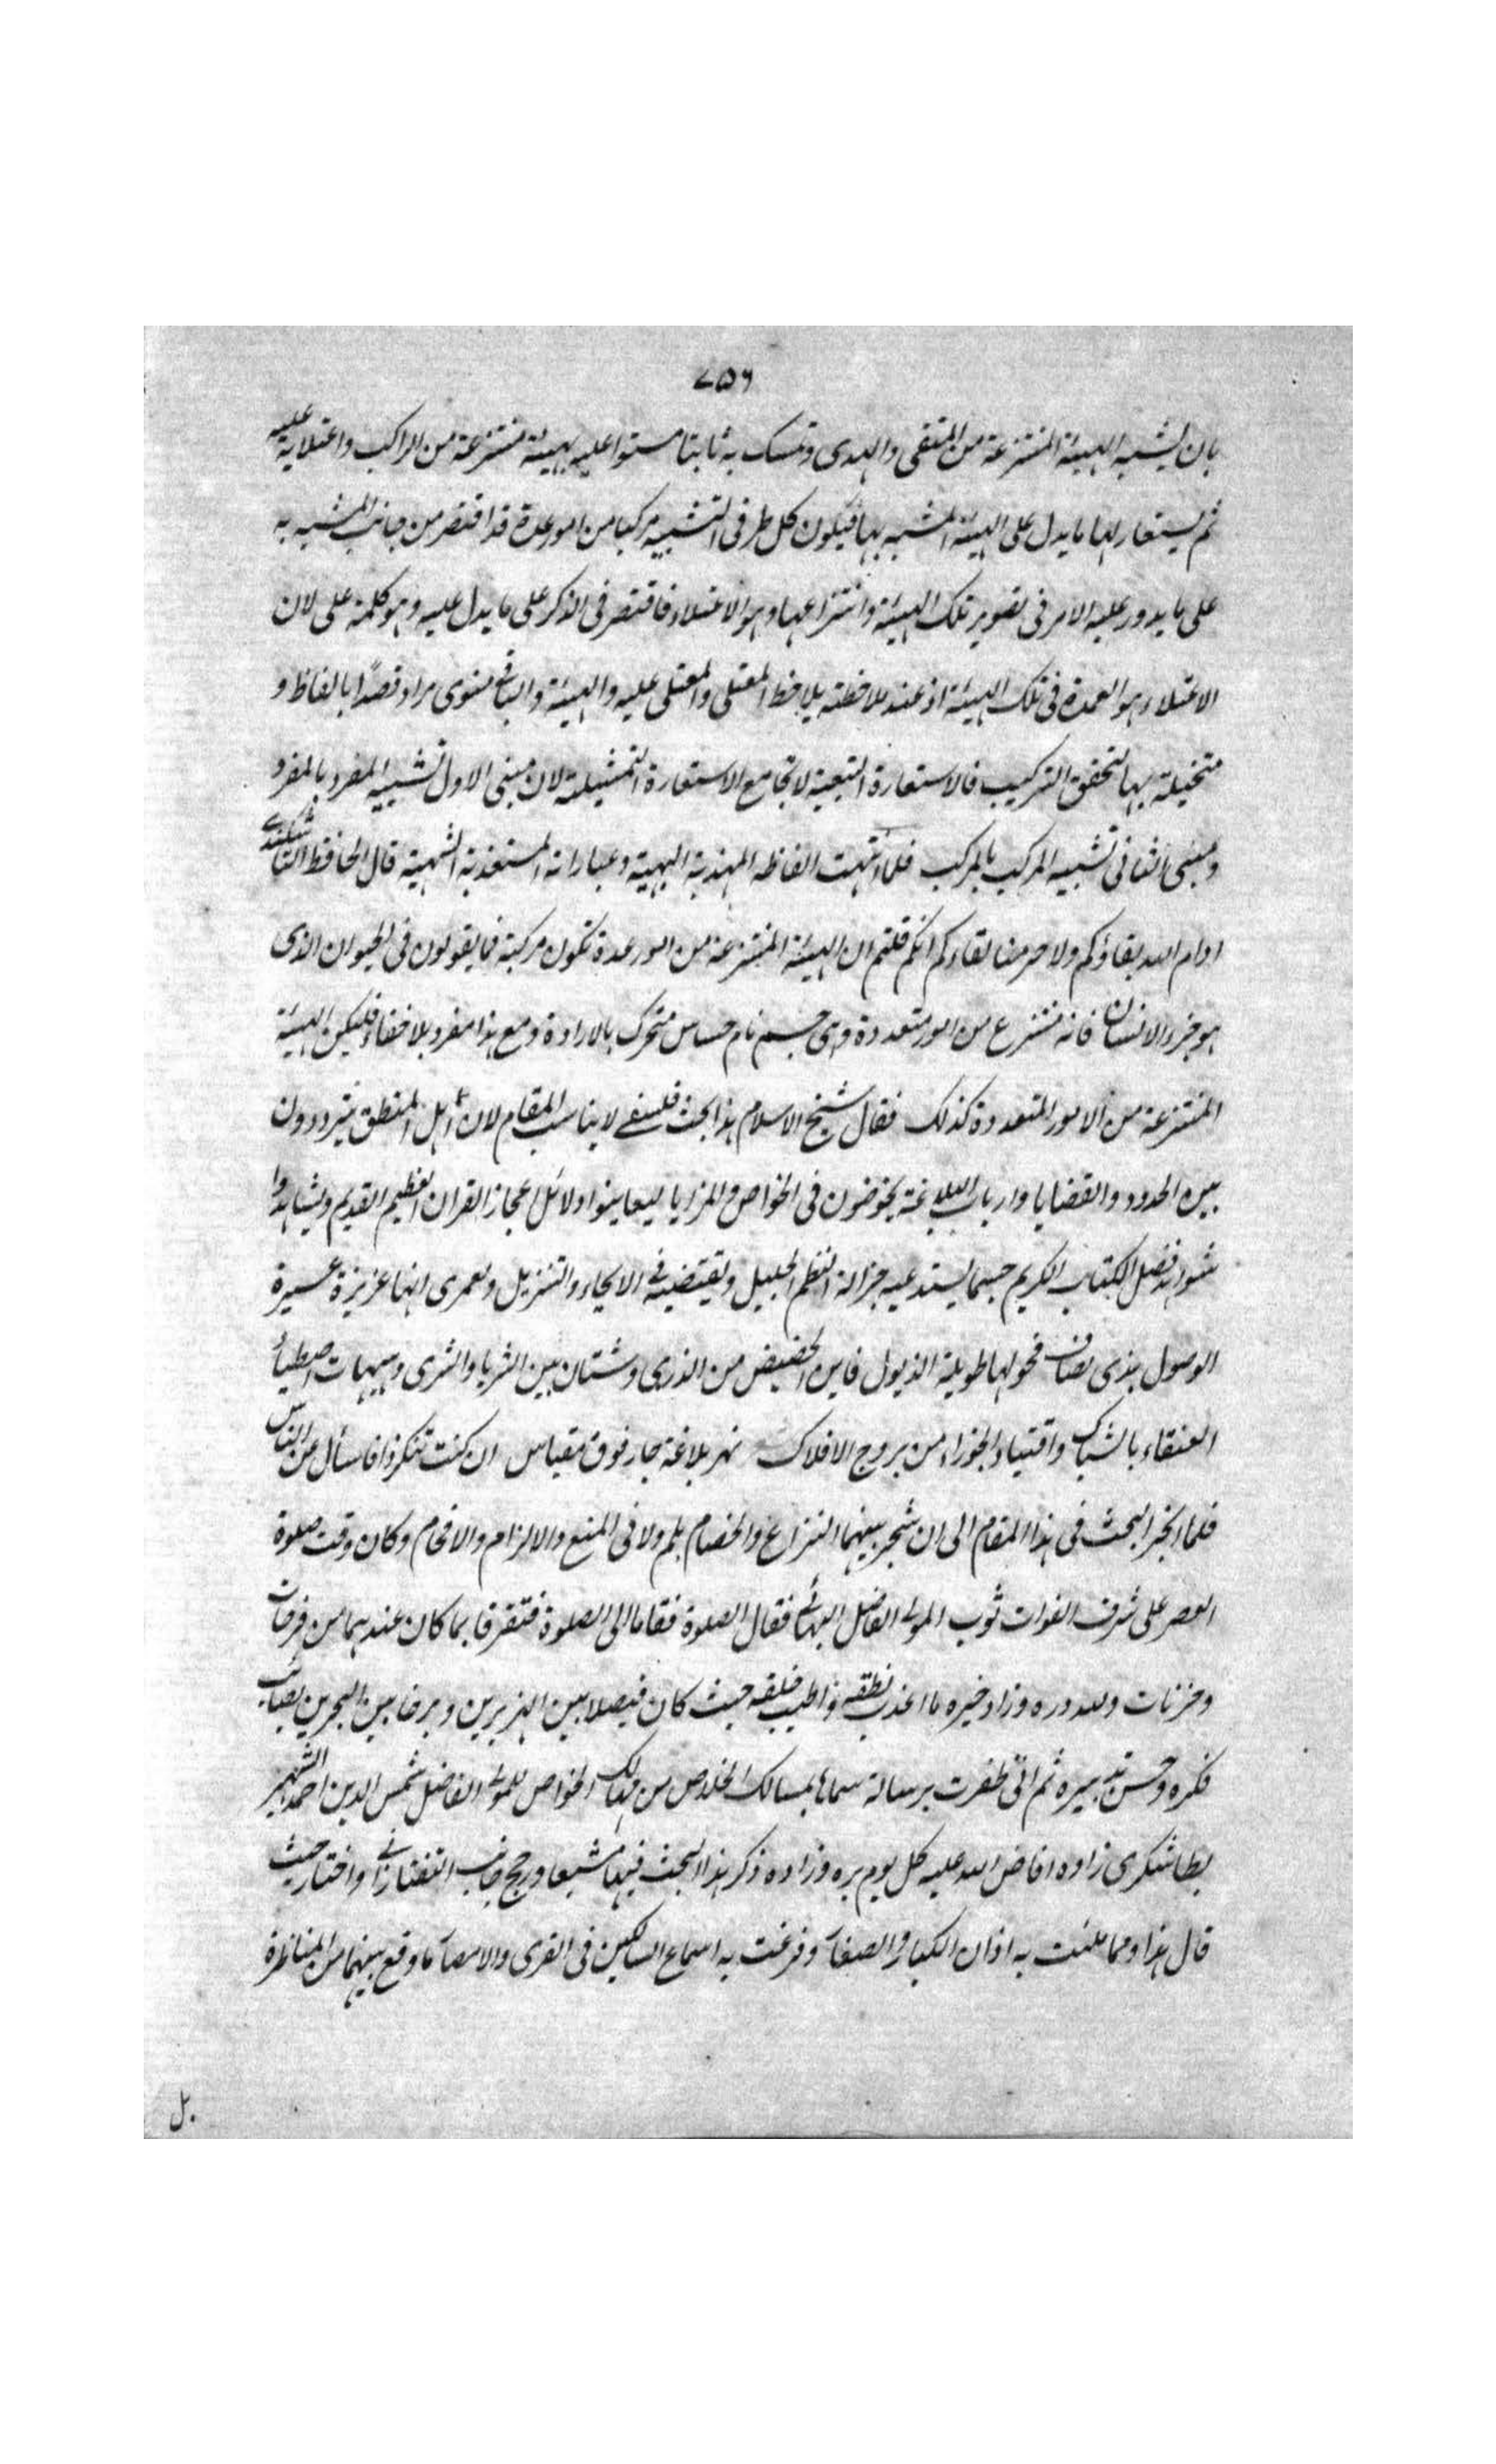 ٧٥٦
بان يشبه الهيئة المنتزعة من المتقى والهدى وتمسكه به ثابتا مستوا عليه بهيئة منتزعة من الراكب واعتلائه عليه
ثم يستعار لها ما يدل على الهيئة المشبه بها فيكون كل طرفى التشبيه مركبا من امور عدة قد اقتصر من جانب المشبه به
على ما يدور عليه الامر فى تصوير تلك الهيئة وانتزاعها وهو الاعتلاء فاقتصر فى الذكر على ما يدل عليه وهو كلمة على لان
الاعتلاء هو العمدة فى تلك الهيئة اذ عند ملاحظته يلاحظ المعتلى والمعتلى عليه والهيئة والباقى منوى مراد قصدًا بالفاظ و
متخيلة بها لتحقق التركيب فالاستعارة التبعية لا تجامع الاستعارة التمثيلية لان مبنى الاول تشبيه المفرد بالمفرد
ومبنى الثانى تشبيه المركب بالمركب فلما انتهت الفاظه المهذبة البهية وعباراته المستعذبة الشهية قال الحافظ التاشكندى
ادام الله بقاؤكم ولا حرمنا لقاءكم انكم قلتم ان الهيئة المنتزعة من امور عدة تكون مركبة فما يقولون فى الحيوان الذى
هو جزء الانسان فانه منتزع من امور متعددة وهى جسم نام حساس متحرك بالارادة ومع هذا مفرد بلا خفاء فليكن الهيئة
المنتزعة من الامور المتعددة كذلك فقال شيخ الاسلام هذا بحث فلسفى لا يناسب المقام لان اهل المنطق يترددون
بين الحدود والقضايا وارباب البلاغة يخوضون فى الخواص والمزايا ليعاينوا دلائل اعجاز القران العظيم القديم ويشاهدوا
شواهد فضل الكتاب الكريم حسبما يستدعيه جزالة النظم الجليل ويقتضيه فى الايحاء والتنزيل ولعمرى انها عزيزة عسيرة
الوصول بذى نصاف فحولها طويلة الذيول فاين الحضيض من الذرى وشتان بين الثريا والثرى وهيهات اصطياد
العنقاء بالشباك واقتياد الجوزاء من بروج الافلاك نهر بلاغة جار فوق مقياس ان كنت تنكر ذا فاسأل من الناس
فلما انجر البحث فى هذا المقام الى ان شجر بينهما النزاع والخصام بلم ولا فى المنع والالزام والافحام وكان وقت صلوة
العصر على شرف الفوات ثوب المولى الفاضل البهائى فقال الصلوة فقاما الى الصلوة فتفرقا بما كان عندهما من فرحات
وحزنات ولله دره وزاد خيره ما اعذب نطقه واطيب خلقه حيث كان فيصلا بين الهزبرين وبرزخا بين البحرين بصائب
فكره وحسن تدبيره ثم انى ظفرت برسالة سماها بمسالك الخلاص من مهالك الخواص للمولى الفاضل شمس الدين احمد الشهير
بطاشكرى زاده افاض الله عليه كل يوم بره وزاده ذكر هذا البحث فيها مشبعا ورجح جانب التفتازانى واختار حيث
قال هذا ومما ملئت به اذان الكبار والصغار وقرعت به اسماع الساكنين فى القرى والامصار ما وقع بينهما من المناظرة
بل